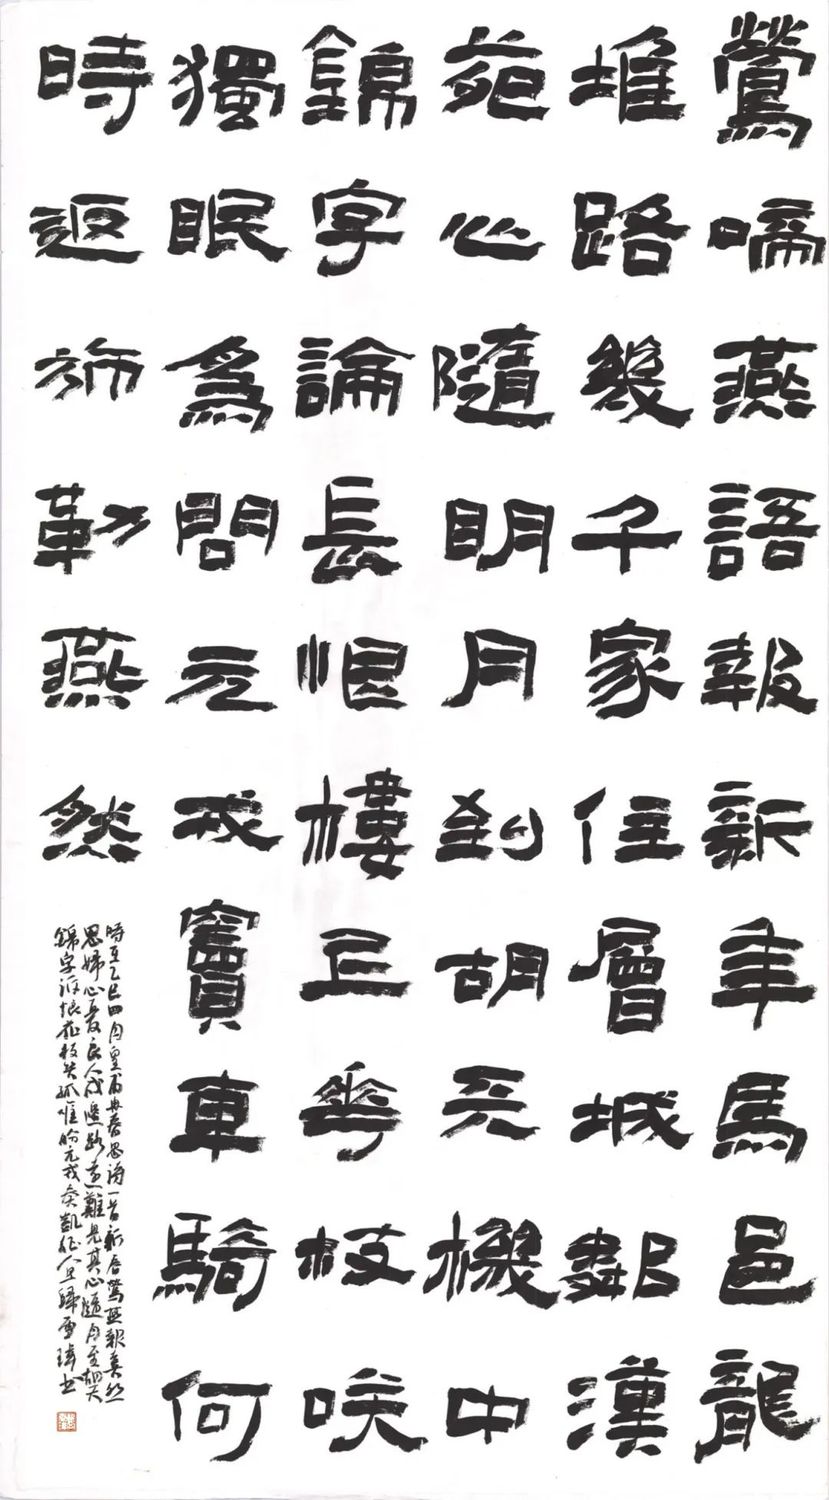 鶯啼燕語報新年馬邑龍
堆路幾千家住層城鄰漢
苑心隨明月到胡天機中
錦字論長恨樓上花枝咲
獨眠爲問元戎竇車騎何
時返旆勒燕然
時在乙巳四月皇甫冉春思詩一首新春鶯燕報
思婦心良人戍邊路遠難見其心隨月至胡天
錦字訴恨花枝笑孤惟盼元戎奏凱征人早歸書